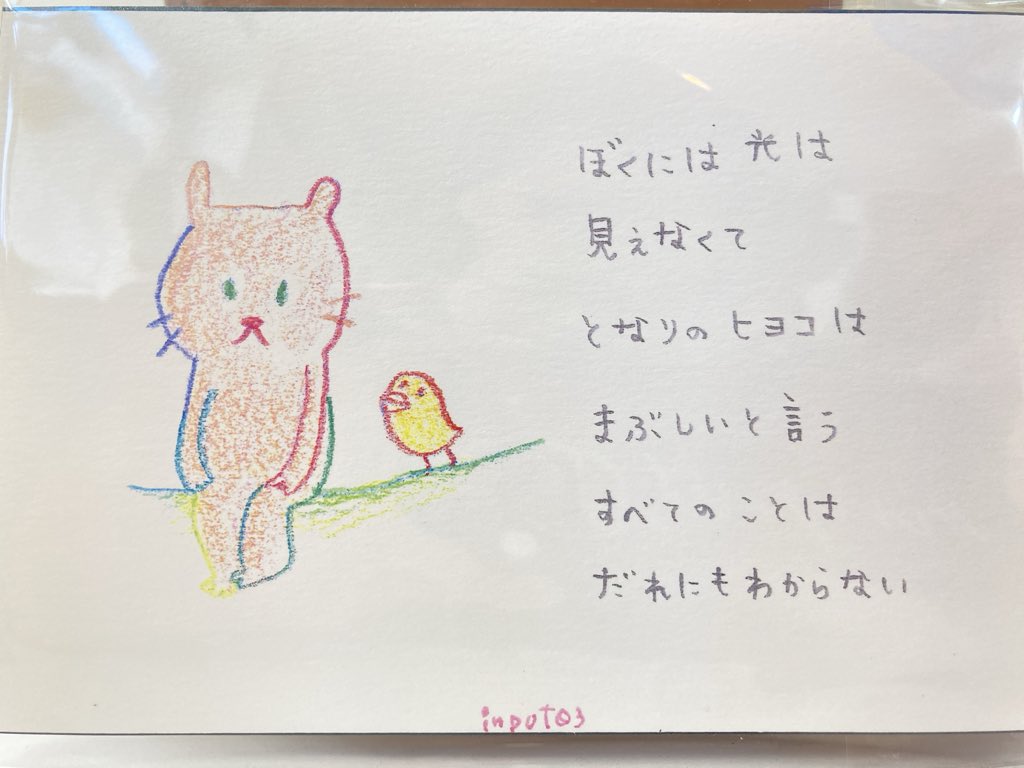 ぼくには 光は
見えなくて
となりの ヒヨコは
まぶしいと言う
すべての ことは
だれにもわからない
inpuT03